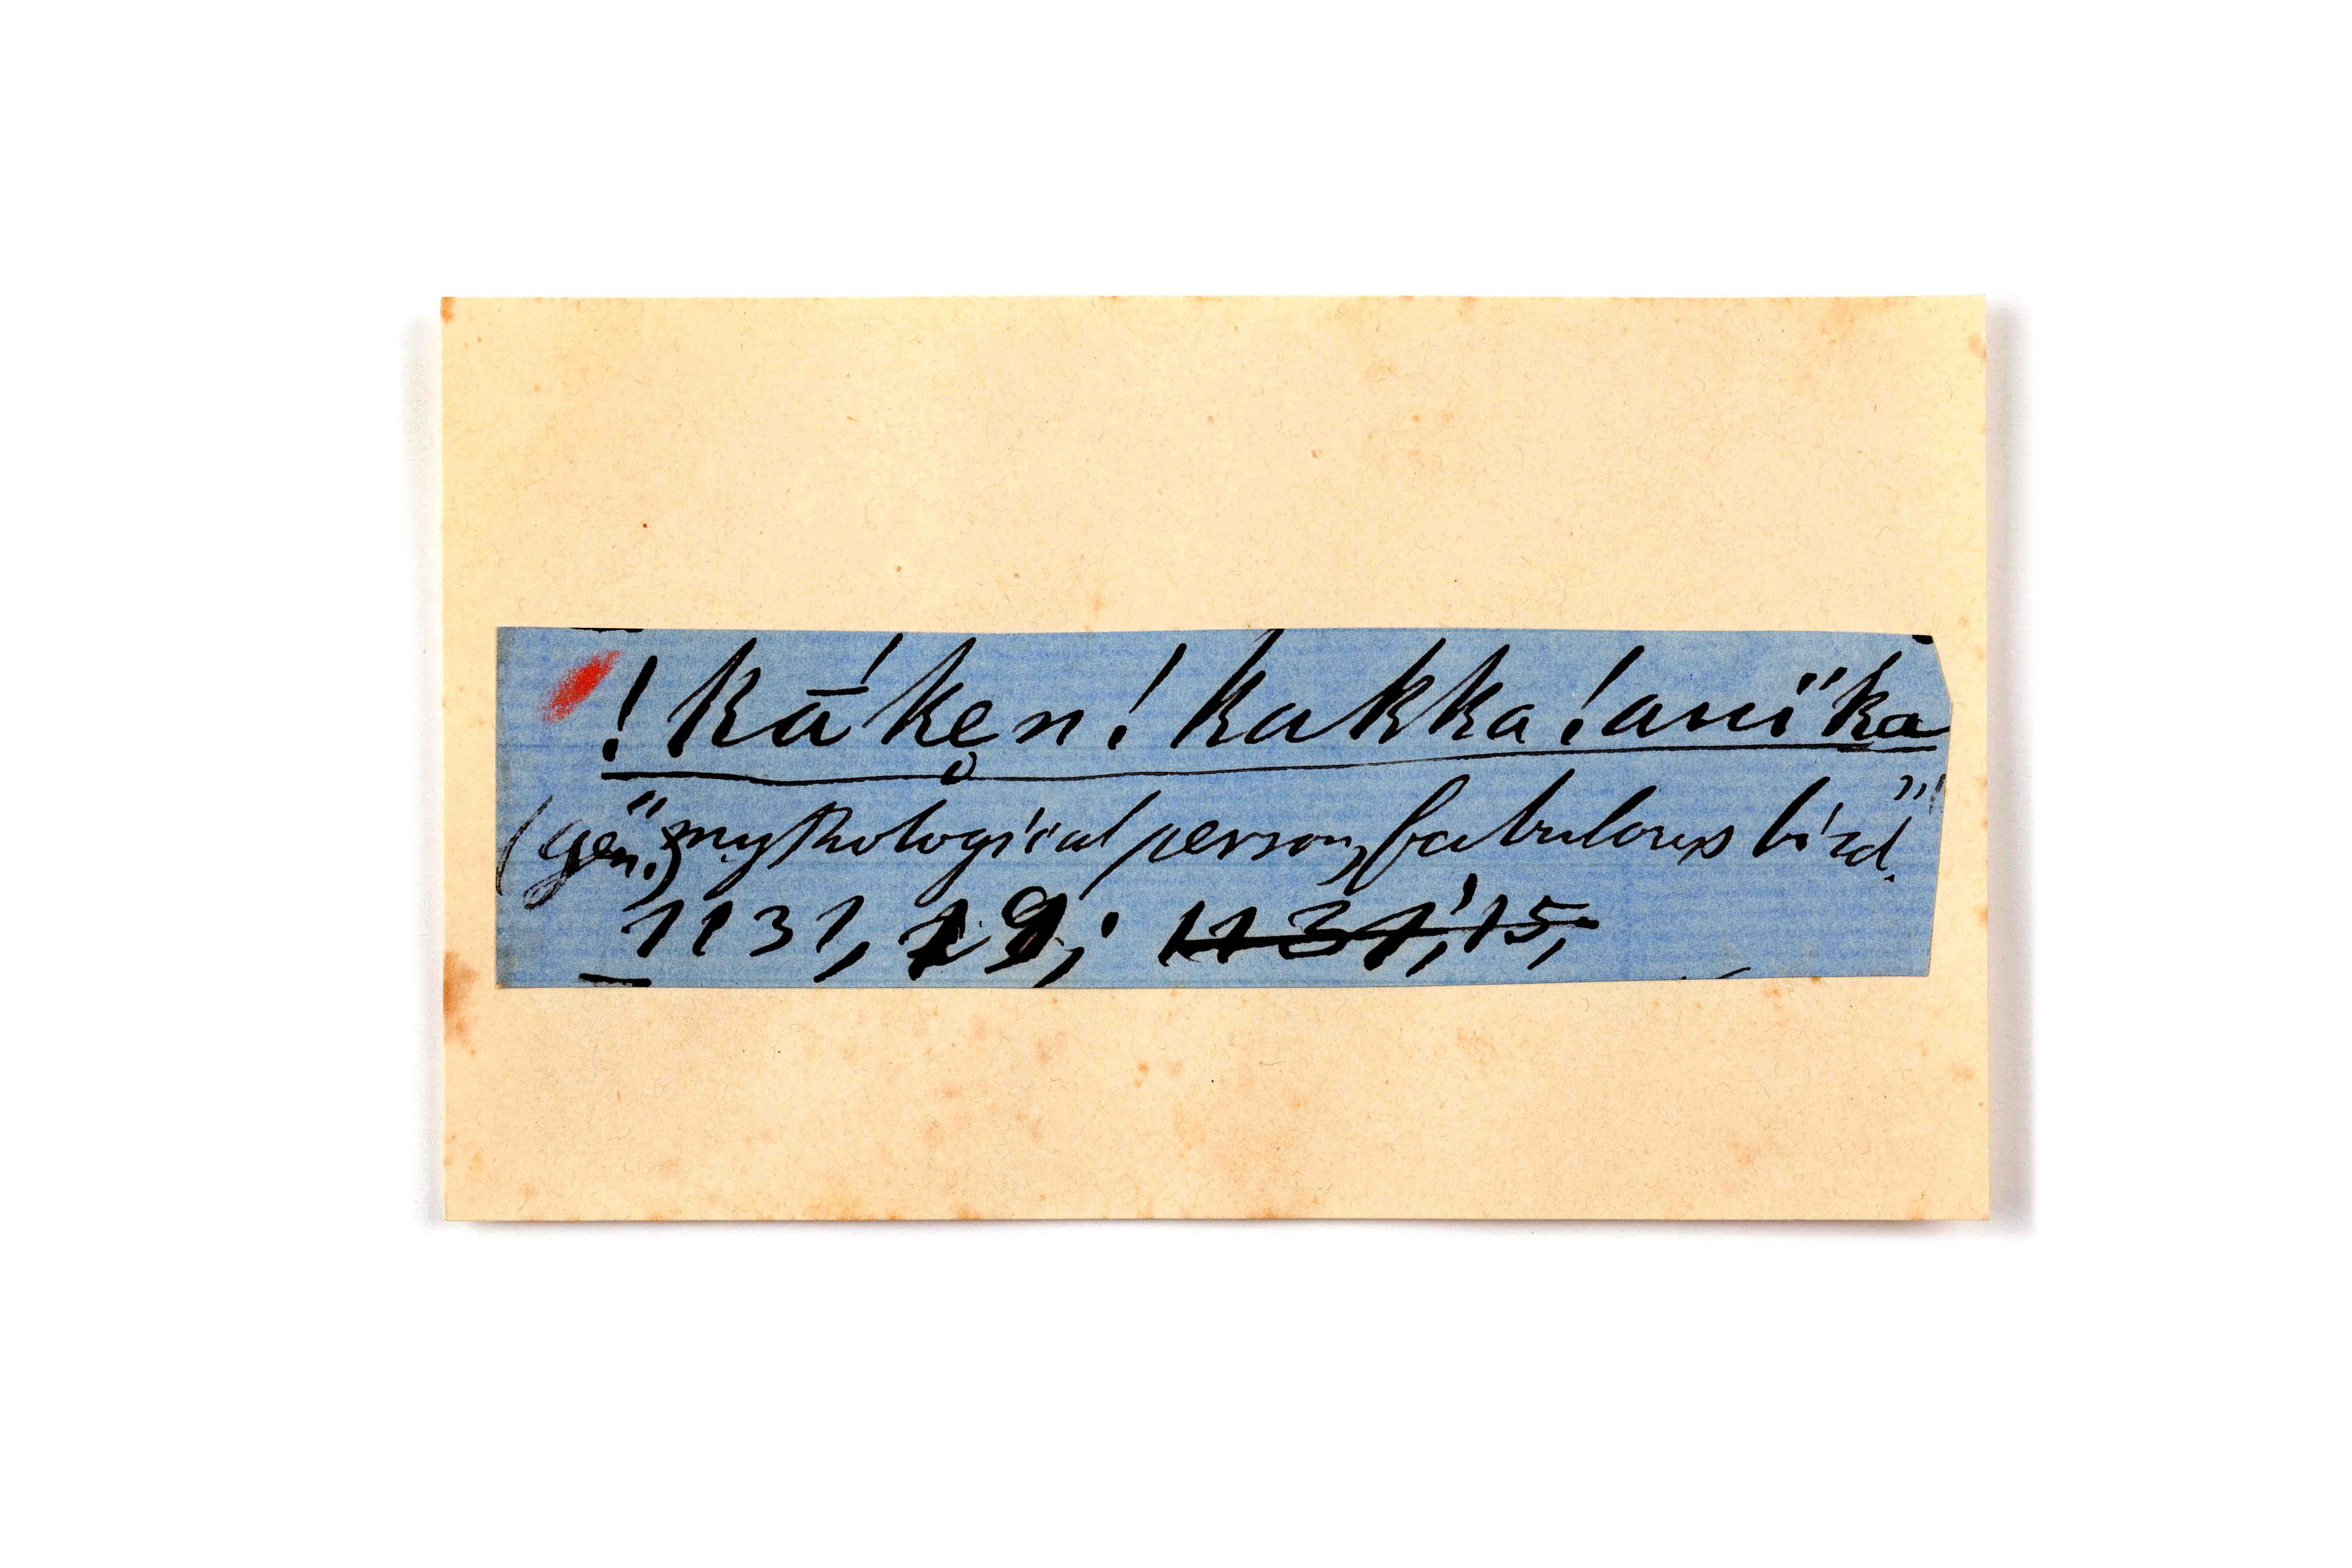 !kā!kẹn!kakka!aui"ka
(gen.) "mythological person, fabulous bird."
1131, 29; 1131,'15,